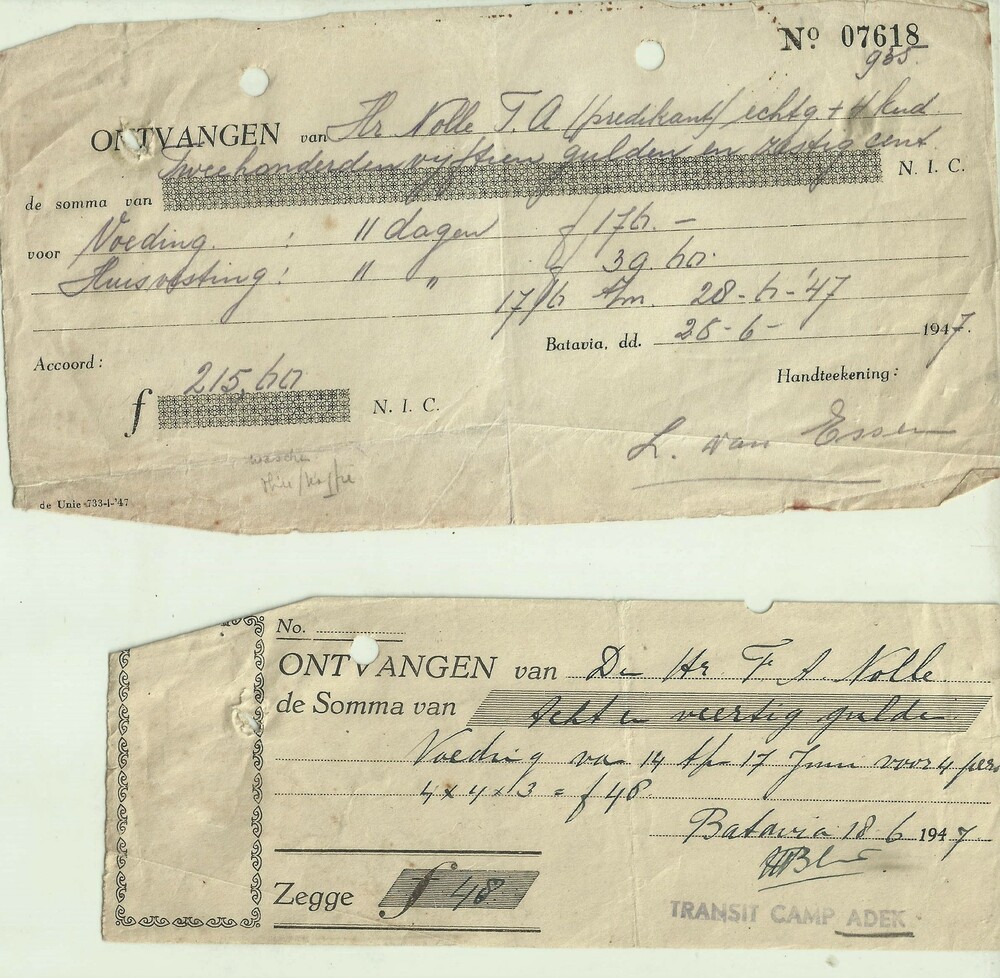 No 07618
935.
ONTVANGEN van Hr Nolle T. A (predikant) echtg. + 4 kind
de somma van tweehonderdenvijftien gulden en zestig cent N. I. C.
voor Voeding : 11 dagen f 176.-
Huisvesting : 11 " f 39.60.
17/6 t/m. 28-6-'47
Batavia, dd. 28-6- 1947.
Accoord:
Handteekening:
f 215,60 N. I. C.
L. van Essen
de Unie 733-I-'47
No.
ONTVANGEN van De Hr F A. Nolle
de Somma van Acht en veertig gulden
Voeding van 14 t/m 17 Juni voor 4 pers
4 x 4 x 3 = f 48
Batavia 18 6 1947
Zegge f 48.
TRANSIT CAMP ADEK